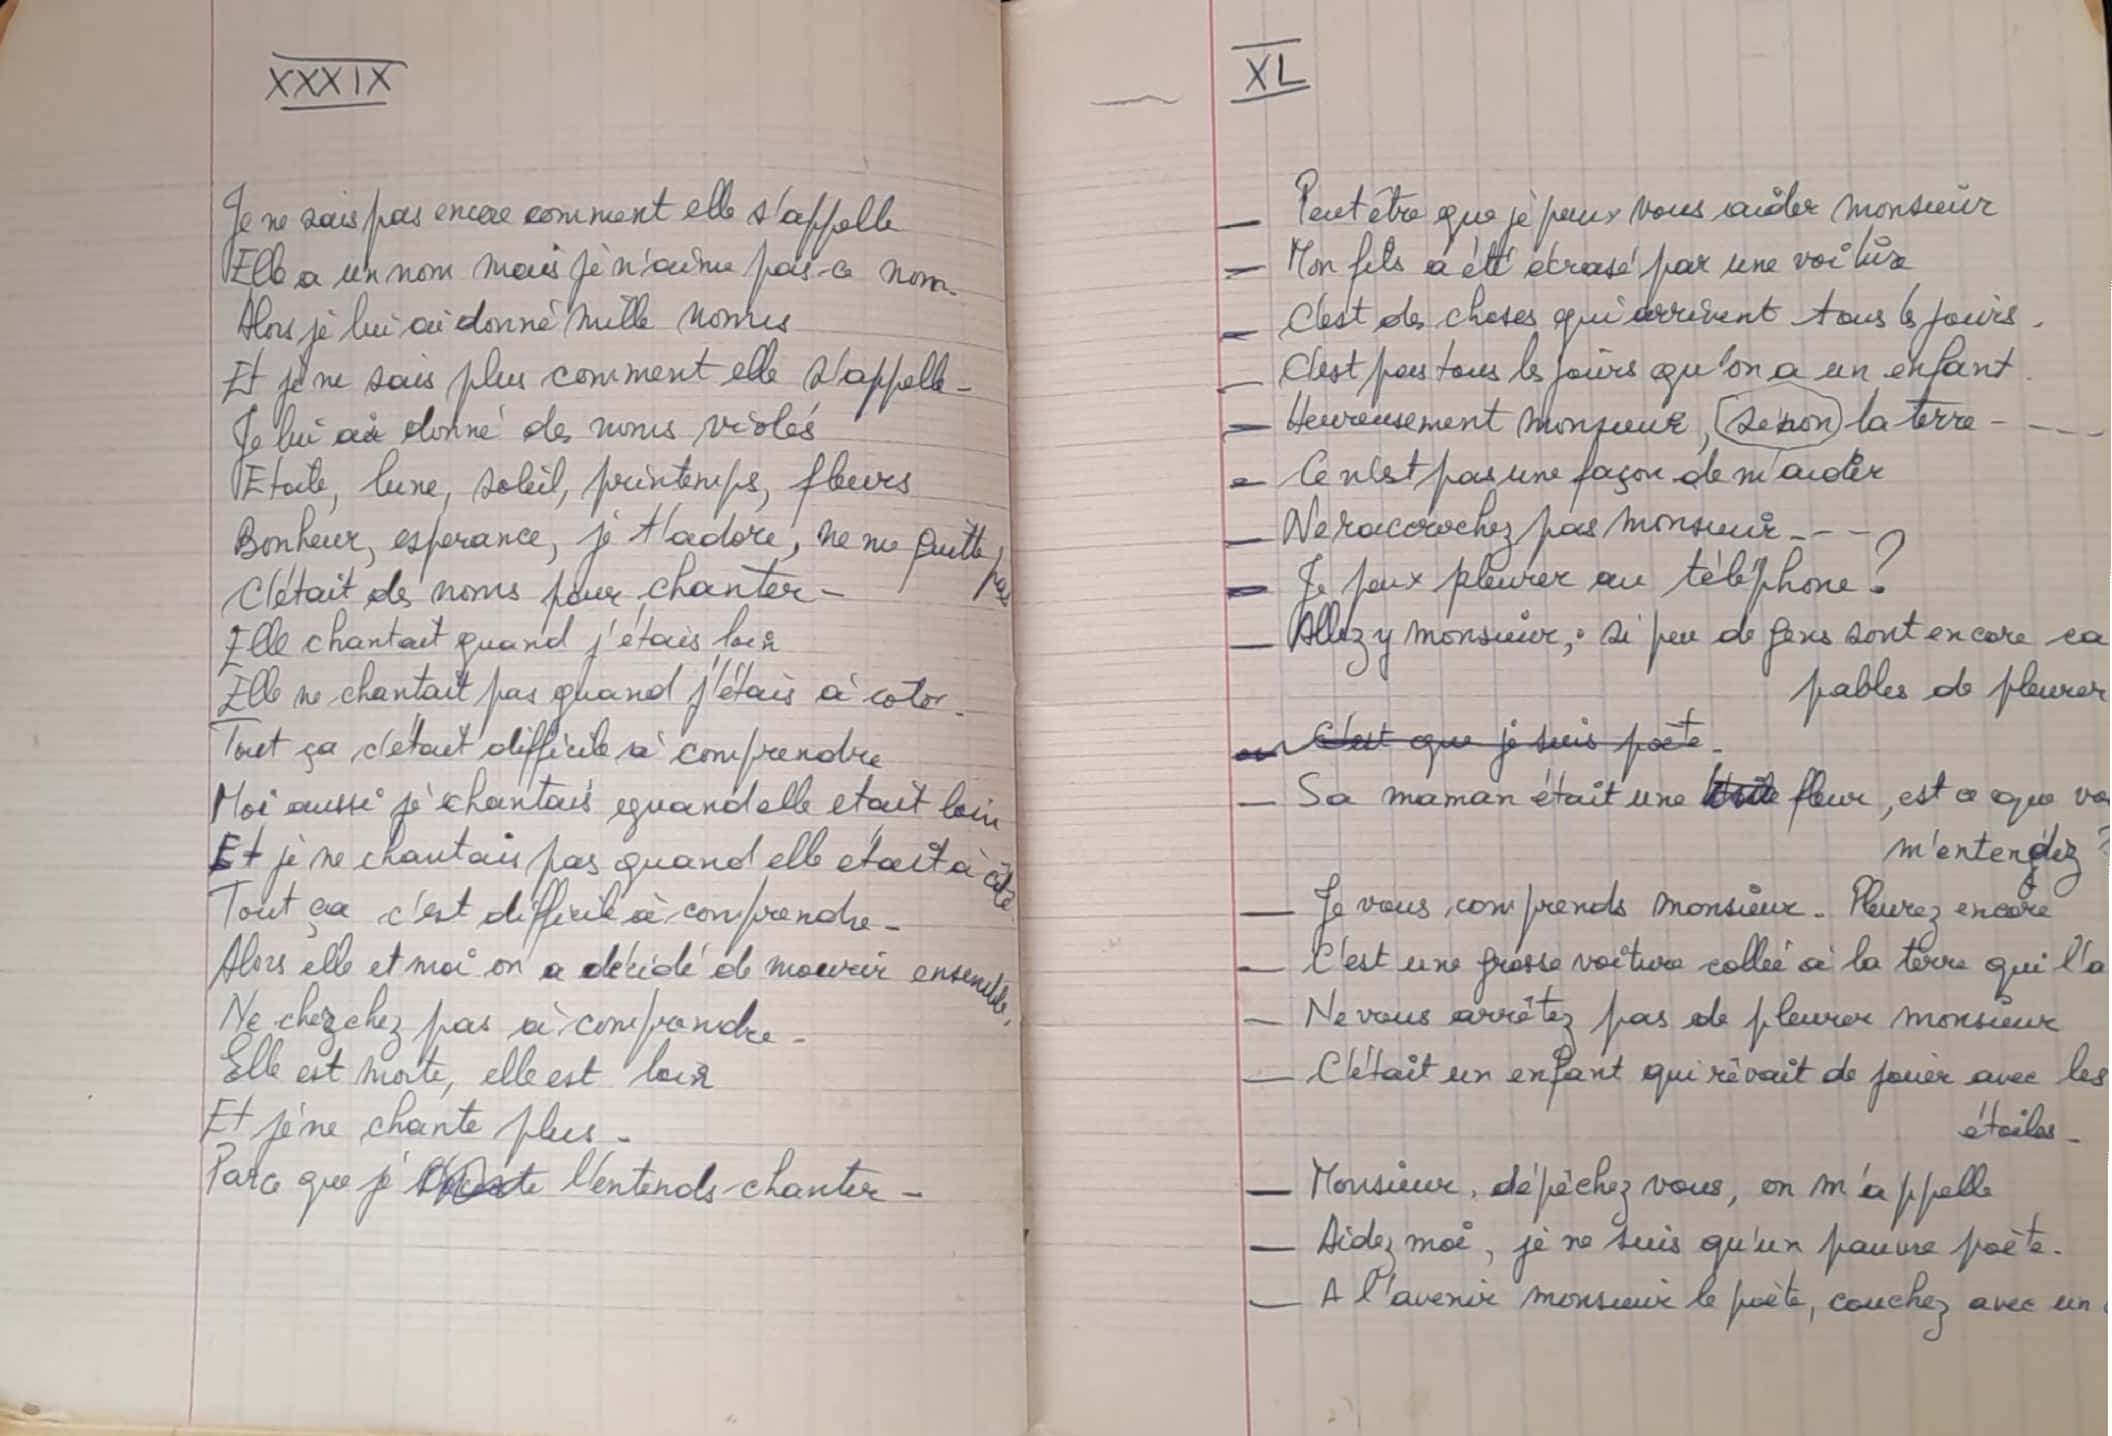 XXXIX
Je ne sais pas encore comment elle s'appelle
Elle a un nom mais je n'aime pas ce nom.
Alors je lui ai donné mille noms
Et je ne sais plus comment elle s'appelle -
Je lui ai donné des noms violés
Etoile, lune, soleil, printemps, fleurs
Bonheur, esperance, je t'adore, ne me quitte pas
C'était des noms pour chanter -
Elle chantait quand j'étais loin
Elle ne chantait pas quand j'étais à coter -
Tout ça c'était difficile à comprendre
Moi aussi je chantais quand elle etait loin
Et je ne chantais pas quand elle etait à côté
Tout ça c'est difficile à comprendre -
Alors elle et moi on a décidé de mourir ensemble.
Ne cherchez pas à comprendre -
Elle est morte, elle est loin
Et je ne chante plus -
Parce que je l'entends chanter -
XL
_ Peut être que je peux vous aider monsieur
_ Mon fils a été écrasé par une voiture
_ C'est des choses qui arrivent tous les jours.
_ C'est pas tous les jours qu'on a un enfant.
_ Heureusement monsieur, sinon la terre - ----
_ Ce n'est pas une façon de m'aider
_ Ne raccrochez pas monsieur - - -
_ Je peux pleurer au téléphone ?
_ Allez y monsieur, si peu de gens sont encore ca
pables de pleurer
_ C'est que je suis poète -
_ Sa maman était une fleur, est ce que vo
m'entendez ?
_ Je vous comprends monsieur - Pleurez encore
_ C'est une grosse voiture collée à la terre qui l'a
_ Ne vous arrêtez pas de pleurer monsieur
_ C'était un enfant qui rêvait de jouer avec les
étoiles -
_ Monsieur, dépêchez vous, on m'appelle
_ Aidez moi, je ne suis qu'un pauvre poète.
_ A l'avenir monsieur le poète, couchez avec un